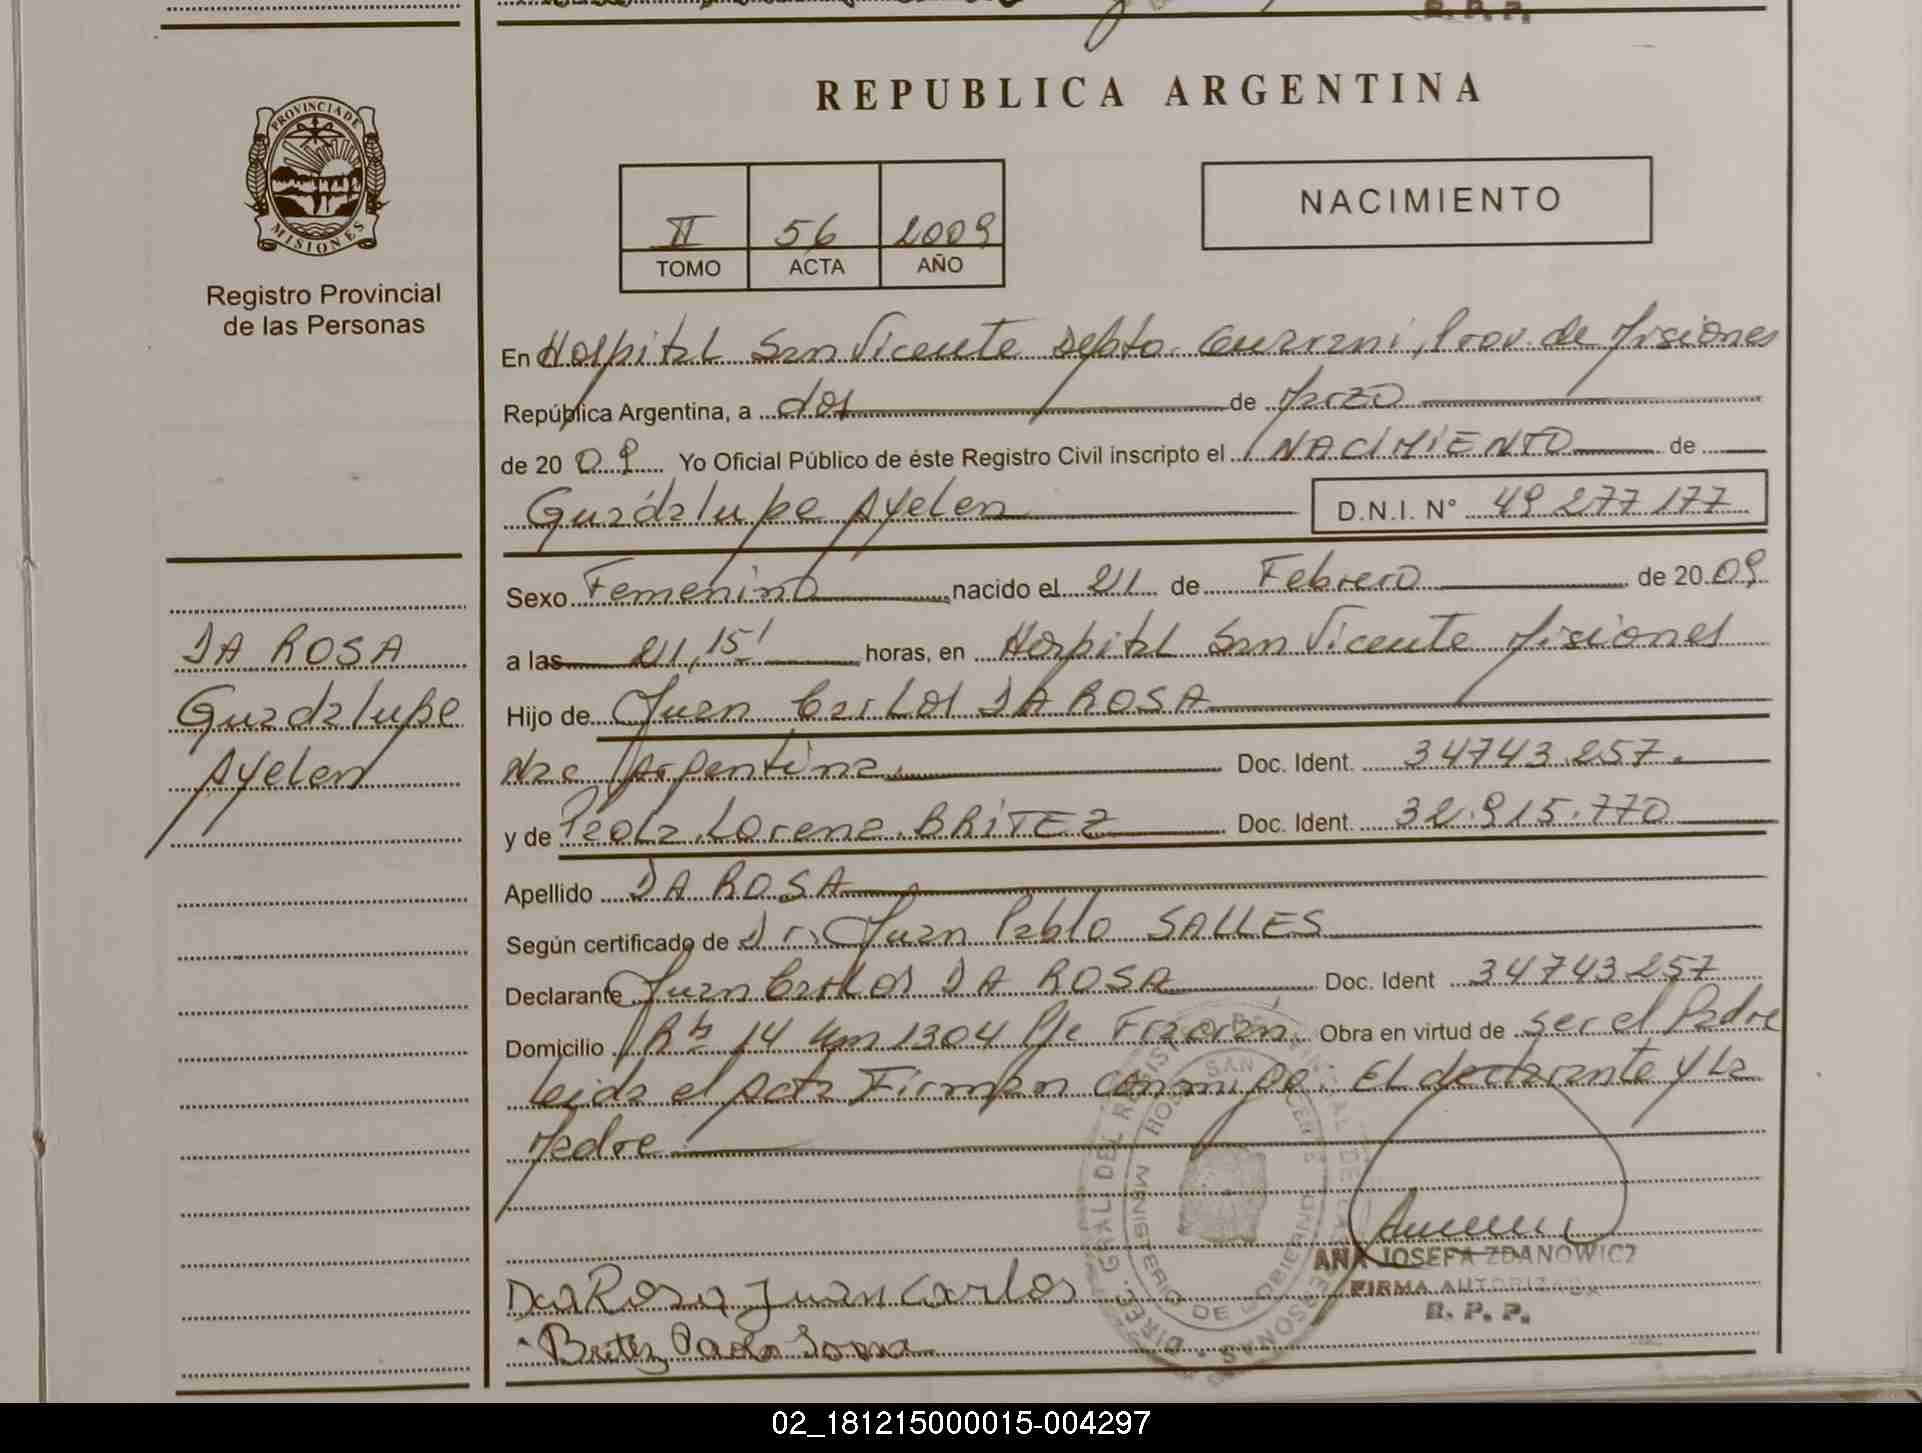 PROVINCIA DE
MISIONES
Registro Provincial
de las Personas
DA ROSA
Guadalupe
Ayelen
R. P. P.
REPUBLICA ARGENTINA
II 56 2009
TOMO ACTA AÑO
NACIMIENTO
En Hospital San Vicente Depto. Guarani, Prov. de Misiones
República Argentina, a dos de Marzo
de 20 09 Yo Oficial Público de éste Registro Civil inscripto el NACIMIENTO de
Guadalupe Ayelen D.N.I. N° 49 277 177
Sexo Femenino nacido el 21 de Febrero de 20 09
a las 21,15' horas, en Hospital San Vicente Misiones
Hijo de Juan Carlos DA ROSA
Nac Argentina Doc. Ident. 34743.257.
y de Paola Lorena BRITEZ Doc. Ident. 32.915.770
Apellido DA ROSA
Según certificado de Dr. Juan Pablo SALLES
Declarante Juan Carlos DA ROSA Doc. Ident 34743257
Domicilio Rta 14 km 1304 Pje Fracran. Obra en virtud de ser el Padre
leida el Acta Firman conmigo. El declarante y la
Madre
ANA JOSEFA ZDANOWICZ
FIRMA AUTORIZADA
R. P. P.
Da Rosa Juan Carlos
Britez Paola Lorena
02_181215000015-004297